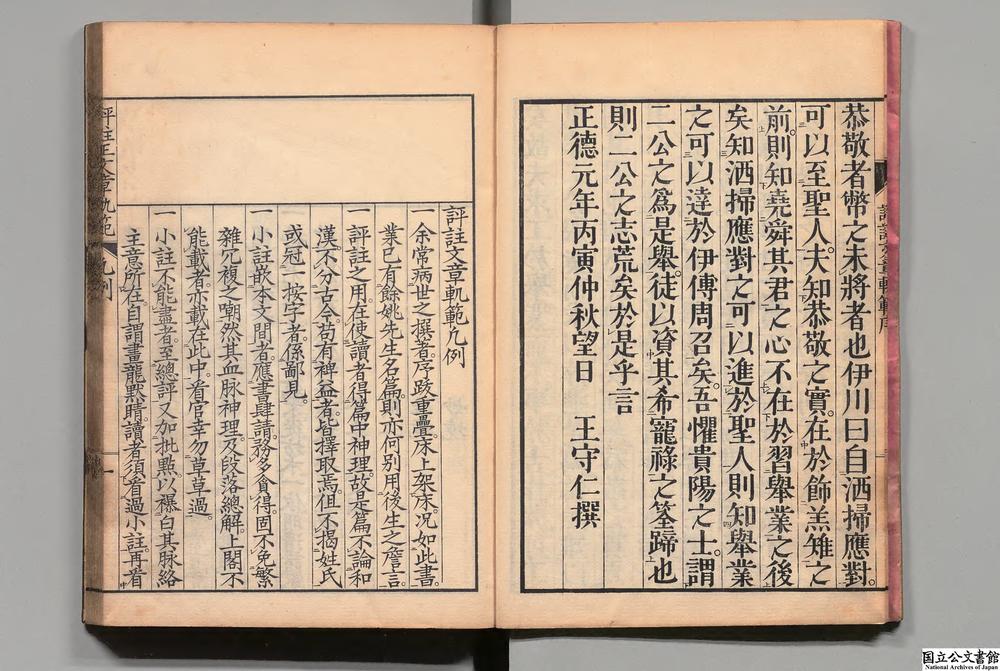 恭敬者幣之未將者也伊川曰自洒掃應對
可以至聖人夫知恭敬之實在於飾羔雉之
前則知堯舜其君之心不在於習舉業之後
矣知洒掃應對之可以進於聖人則知舉業
之可以達於伊傅周召矣吾懼貴陽之士謂
二公之爲是舉徒以資其希寵祿之筌蹄也
則二公之志荒矣於是乎言
正德元年丙寅仲秋望日 王守仁撰
評註文章軌範凡例
一余常病世之撰著序跋重疊床上架床况如此書
業已有餘姚先生名篇則亦何別用後生之詹言
一評註之用在使讀者得篇中神理故是篇不論和
漢不分古今苟有裨益者皆擇取焉但不揭姓氏
或冠一按字者係鄙見
一小註嵌本文間者應書肆請務多貪得固不免繁
雜冗複之嘲然其血脉神理及段落總解上閣不
能載者亦載在此中看官幸勿草草過
一小註不能盡者至總評又加批點以㬥白其脉絡
主意所在自謂畫龍㸃睛讀者須看過小註再看
評註文章軌範 凡例 一
国立公文書館
National Archives of Japan